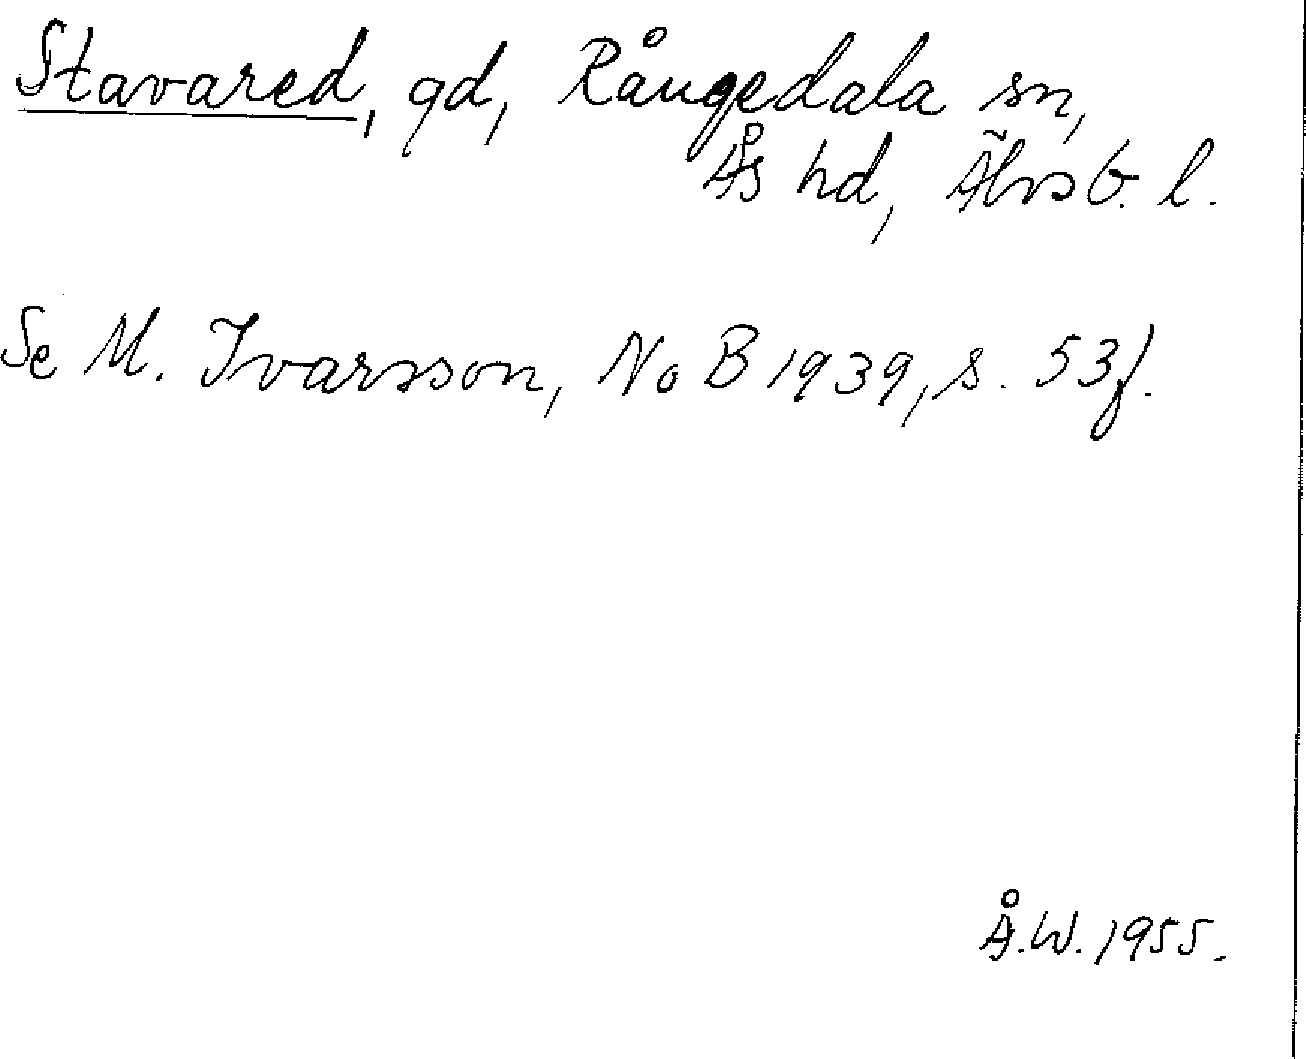 Stavared, gd, Rångedala sn,
Ås hd, Älvsb. l.
Se M. Ivarsson, NoB 1939, s. 53 f.
Å.W. 1955.